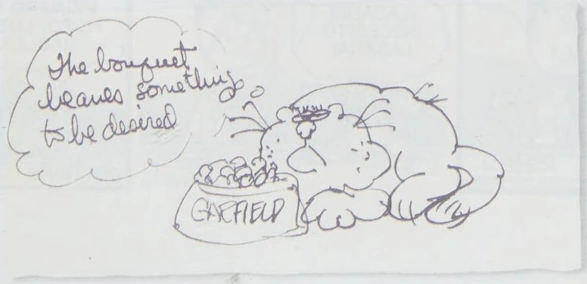 The bouquet
leaves something
to be desired
GARFIELD